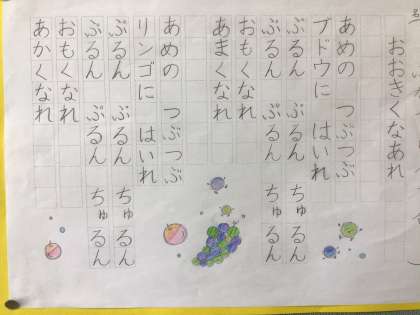 おおきくなあれ
あめの つぶつぶ
ブドウに はいれ
ぷるん ぷるん ちゅるん
ぷるん ぷるん ちゅるん
おもくなれ
あまくなれ
あめの つぶつぶ
リンゴに はいれ
ぷるん ぷるん ちゅるん
ぷるん ぷるん ちゅるん
おもくなれ
あかくなれ